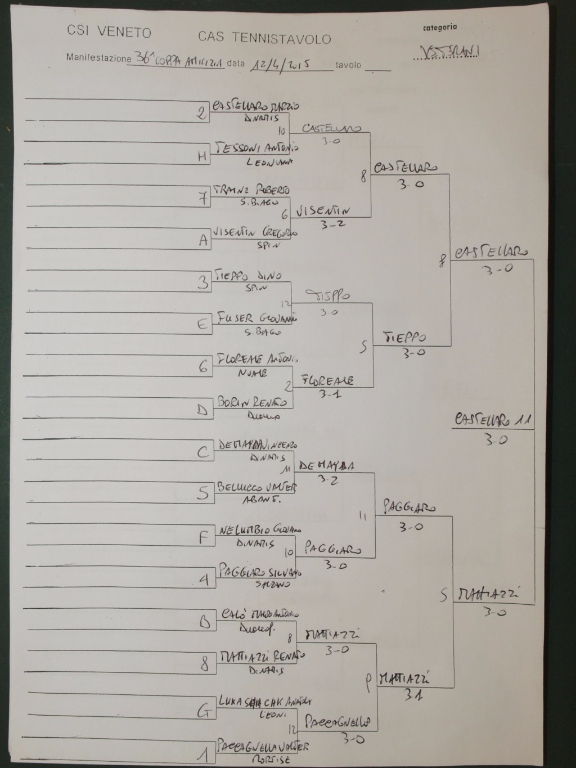 CSI VENETO CAS TENNISTAVOLO categoria
Manifestazione 36^ COPPA AMICIZIA data 12/4/2015 tavolo VETERANI
2 CASTELLARO MARZIO
DINAMIS
10 CASTELLARO
3-0
H TESSONI ANTONIO
LEONIANA
8 CASTELLARO
3-0
7 TRAINI ROBERTO
S. BIAGIO
6 VISENTIN
3-2
A VISENTIN GREGORIO
SPIN
8 CASTELLARO
3-0
3 TIEPPO DINO
SPIN
12 TIEPPO
3-0
E FUSER GIOVANNI
S. BIAGIO
5 TIEPPO
3-0
6 FLOREALE ANTONI.
NOALE
2 FLOREALE
3-1
D BORIN RENATO
CASTELLARO 11
3-0
C DEMAYDA VINCENZO
DINAMIS
11 DEMAYDA
3-2
5 BELLUCCO VALTER
ABANT.
11 PAGGIARO
3-0
F NELUMBIO GIOVANNI
DINAMIS
10 PAGGIARO
3-0
4 PAGGIARO SILVANO
SALZANO
5 MATTIAZZI
3-0
B CALÒ
8 MATTIAZZI
3-0
8 MATTIAZZI RENATO
DINAMIS
MATTIAZZI
3-1
G LUKASHACHUK
LEONI
12 PACCAGNELLA
3-0
1 PACCAGNELLA VALTER
MORTISE